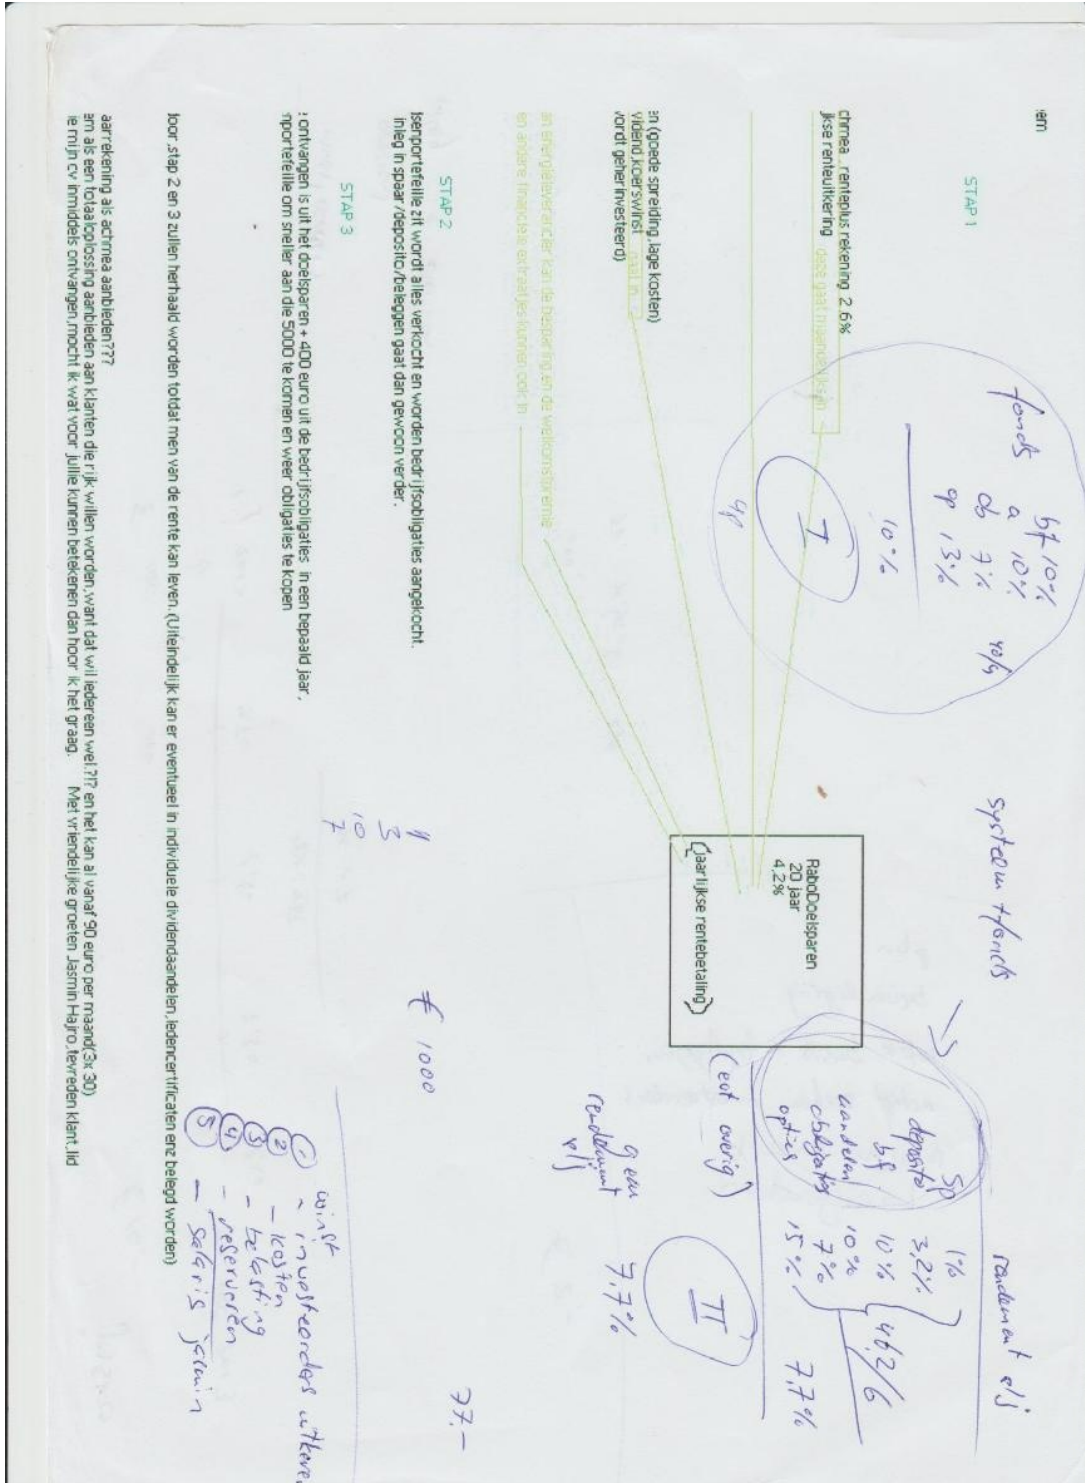 em
STAP 1
chmea renteplus rekening 2.6%
jkse renteuitkering deze gaat maandelijks in
en (goede spreiding,lage kosten)
vidend,koerswinst gaat in
wordt geherinvesteerd)
an energieleverancier kan de besparing en de welkomstpremie
en andere financiele extraatjes kunnen ook in
RaboDoelsparen
20 jaar
4,2%
(jaarlijkse rentebetaling)
STAP 2
lsenportefeille zit wordt alles verkocht en worden bedrijfsobligaties aangekocht.
inleg in spaar/deposito/beleggen gaat dan gewoon verder.
STAP 3
ontvangen is uit het doelsparen + 400 euro uit de bedrijfsobligaties in een bepaald jaar,
nportefeille om sneller aan die 5000 te komen en weer obligaties te kopen
door ,stap 2 en 3 zullen herhaald worden totdat men van de rente kan leven.(Uiteindelijk kan er eventueel in individuele dividendaandelen,ledencertificaten enz belegd worden)
aarrekening als achmea aanbieden???
em als een totaaloplossing aanbieden aan klanten die rijk willen worden,want dat wil iedereen wel.?!? en het kan al vanaf 90 euro per maand(3x 30)
ie mijn cv inmiddels ontvangen,mocht ik wat voor jullie kunnen betekenen dan hoor ik het graag. Met vriendelijke groeten Jasmin Hajro,tevreden klant,lid
fonds bf 10%
a 10%
ob 7%
op 13%
40/4
10%
I
4p
systeem + fonds
rendement p/j
sp 1%
deposito 3,2%
bf 10%
aandelen 10%
obligaties 7%
opties 15%
46,2/6
7,7%
(evt overig)
II
gem
rendement
p/j
7,7%
€ 1000
77,-
3
10
7
winst
1 - investeerders uitkeren
2 - kosten
3 - belasting
4 - reserveren
5 - salaris jasmin